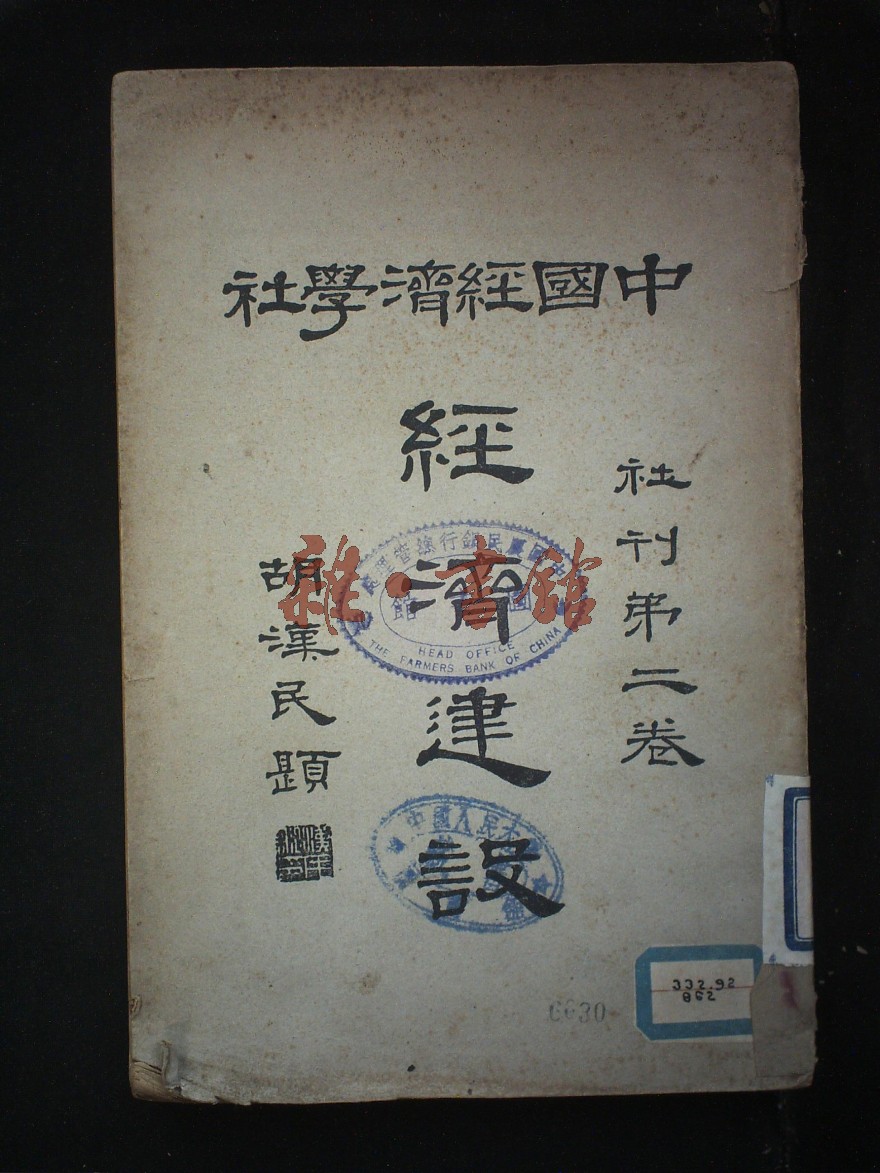 中國經濟學社
社刊第二卷
經濟建設
胡漢民題
中國農民銀行總管理處
圖
館
HEAD OFFICE
THE FARMERS BANK OF CHINA
中國人民大
館
雜·書館
332.92
862